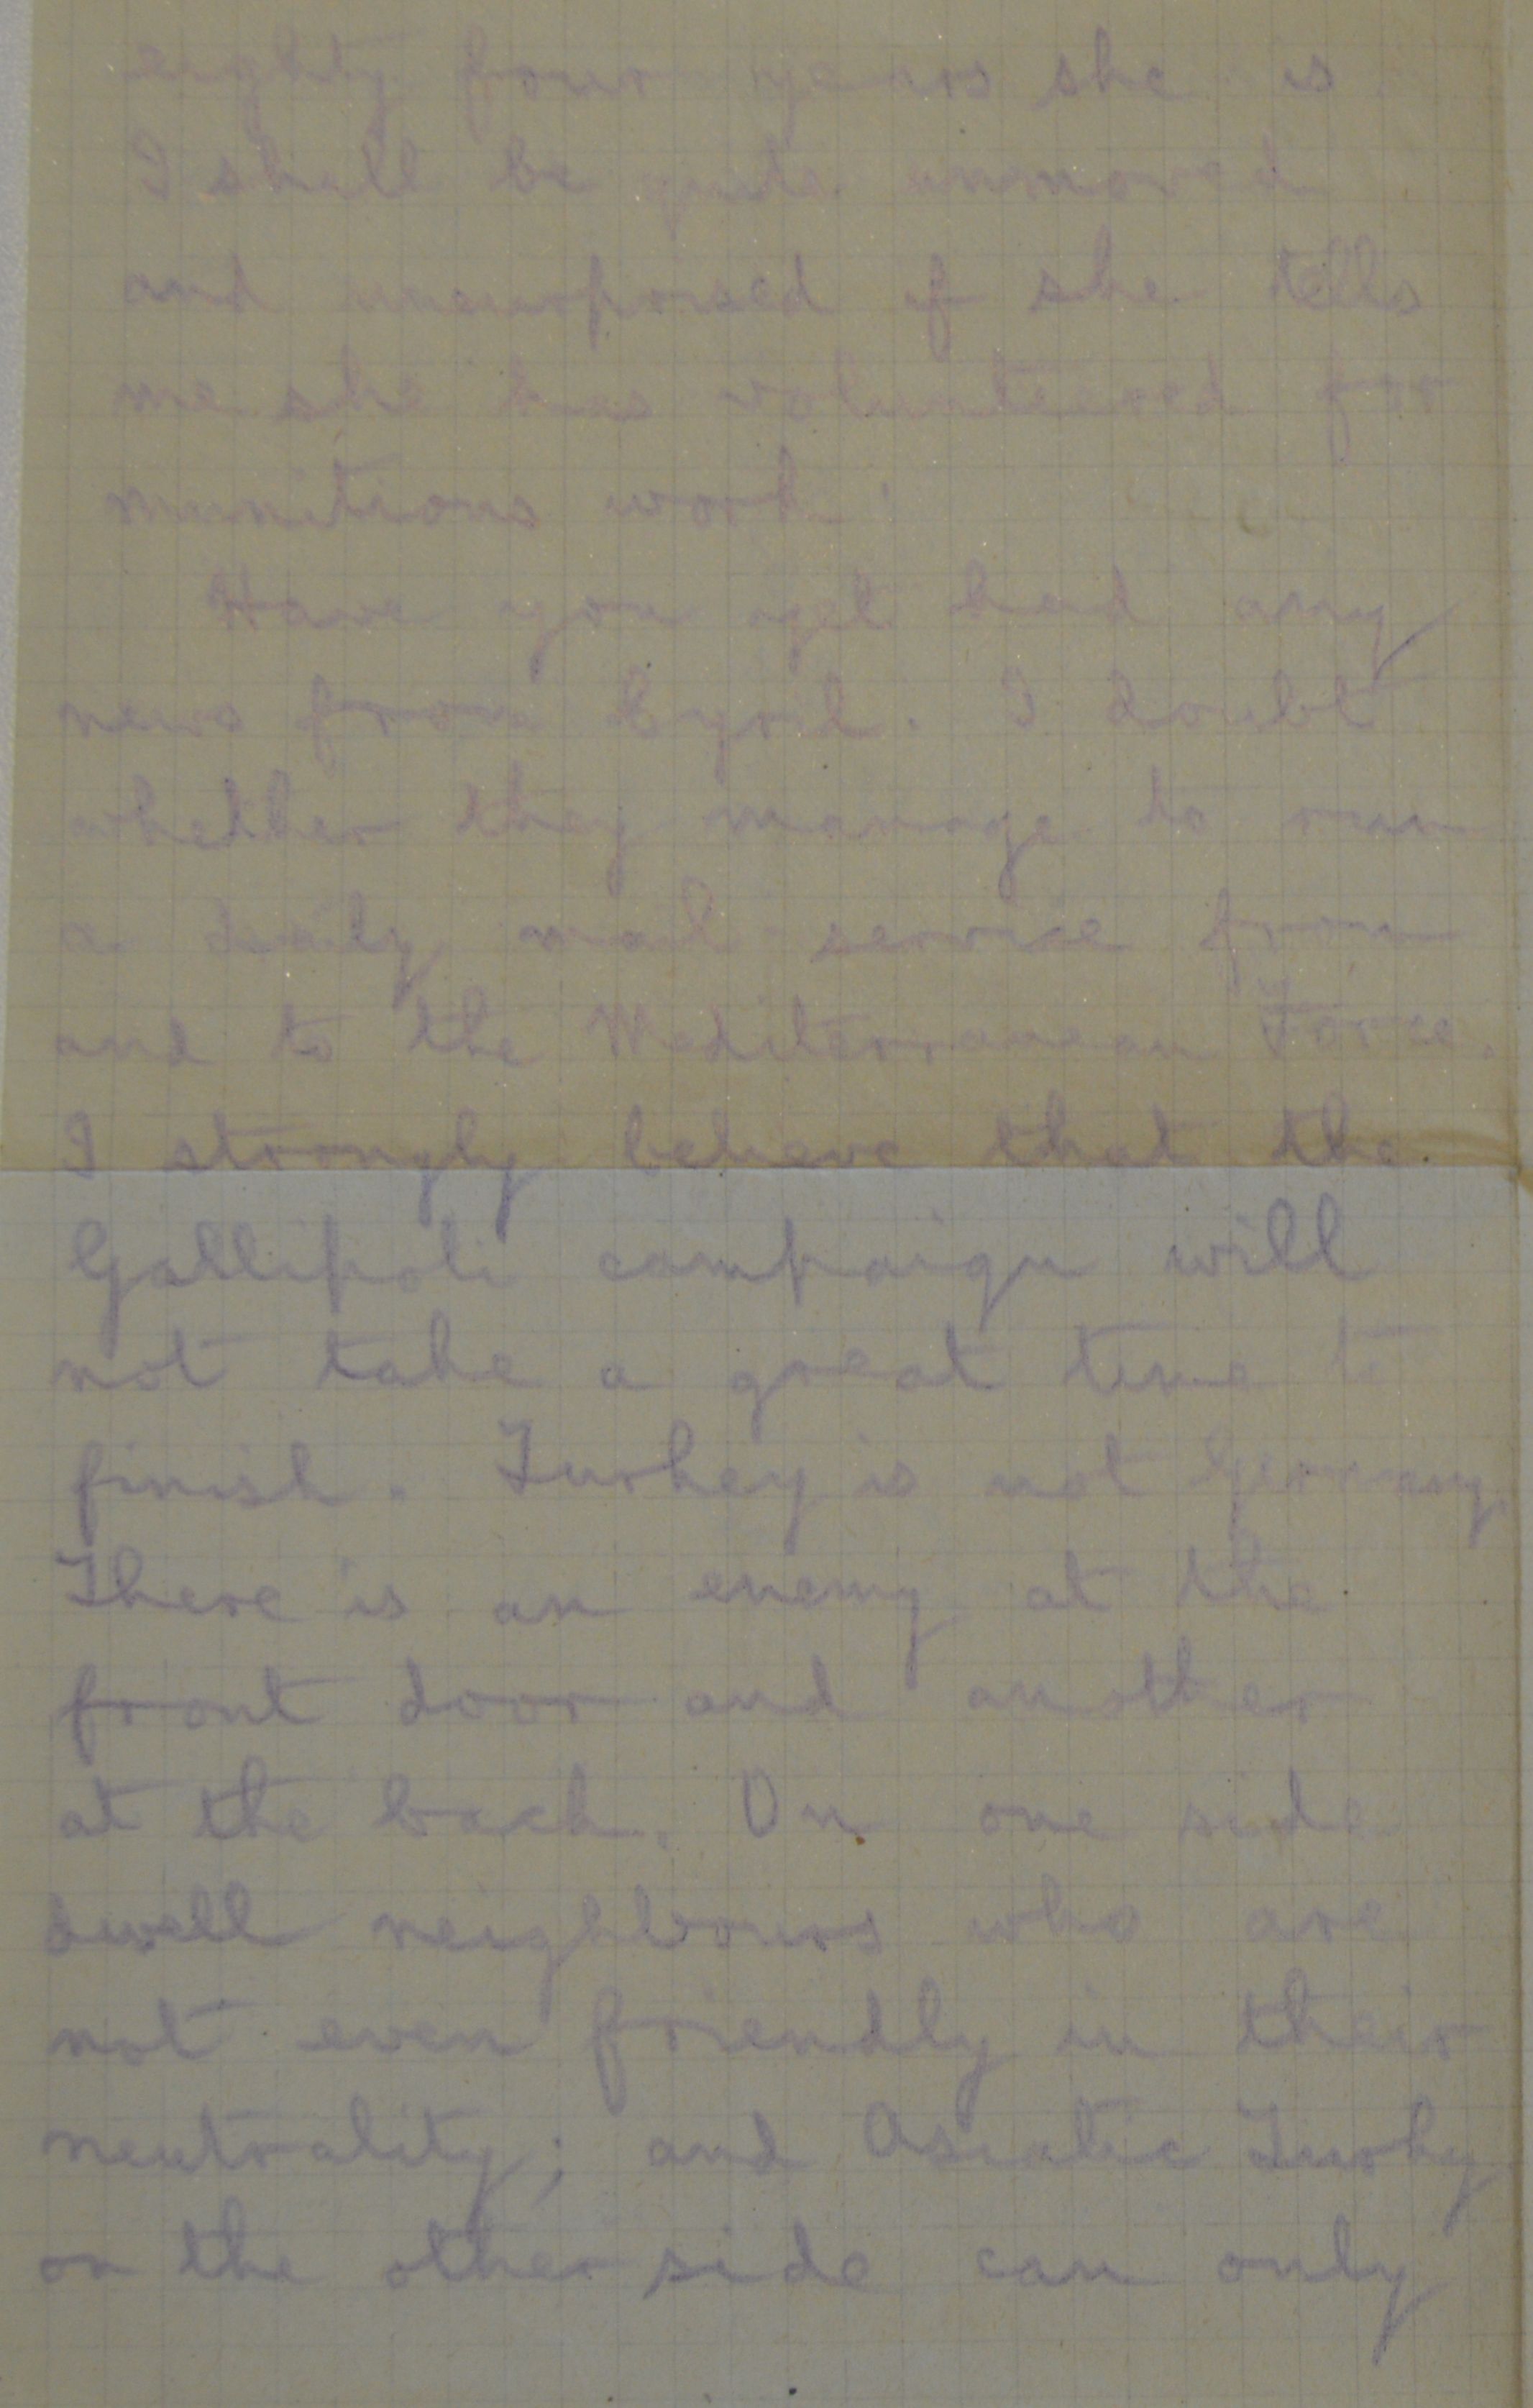 eighty four years she is
I shall be quite unmoved
and unsurprised if she tells
me she has volunteered for
munitions work.
Have you yet had any
news from Cyril. I doubt
whether they manage to run
a daily mail service from
and to the Mediterranean Force.
I strongly believe that the
Gallipoli campaign will
not take a great time to
finish. Turkey is not Germany.
There is an enemy at the
front door and another
at the back. On one side
dwell neighbours who are
not even friendly in their
neutrality; and Asiatic Turky
on the other side can only